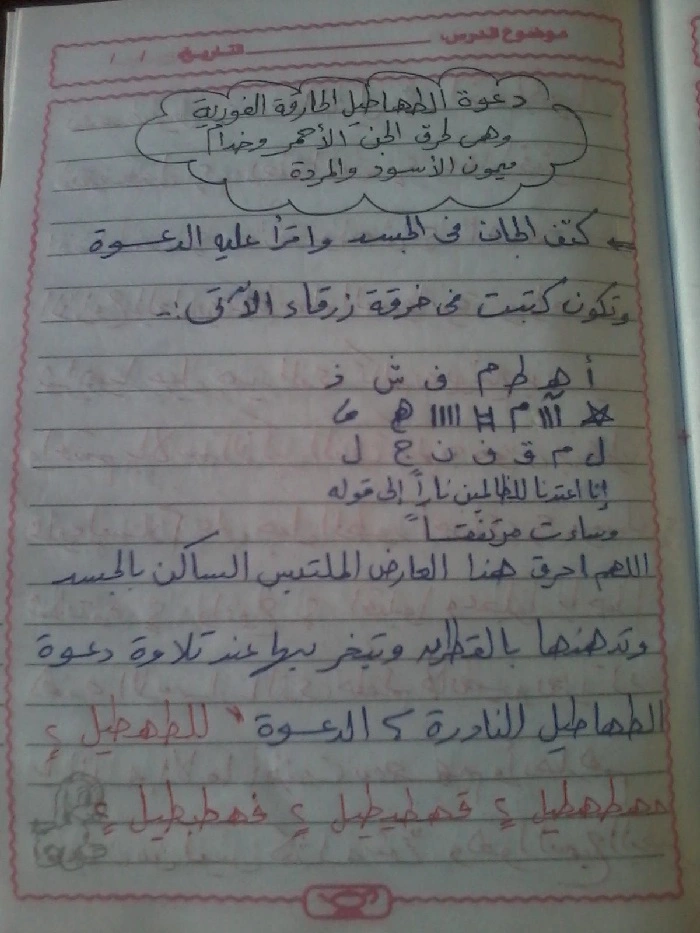 موضوع الدرس: التاريخ / /
دعوة الطهاطيل الحارقة الفورية
وهى لحرق الجن الأحمر وخدام
ميمون الأسود والمردة
كتف الجان فى الجسد واقرأ عليه الدعوة
وتكون كتبت فى خرقة زرقاء الآتى :-
أ هـ ط م ف ش ذ
ل م ق ف ن ج ل
إنا اعتدنا للظالمين ناراً إلى قوله
وساءت مرتفقـاً
اللهم احرق هذا العارض الملتبس الساكن بالجسد
وتدهنها بالقطران وتبخر بها عند تلاوة دعوة
الطهاطيل النادرة الدعوة للطهطيل ٢
مهطهطيل ٢ قهطيطيل ٢ فهطبطيل ٢